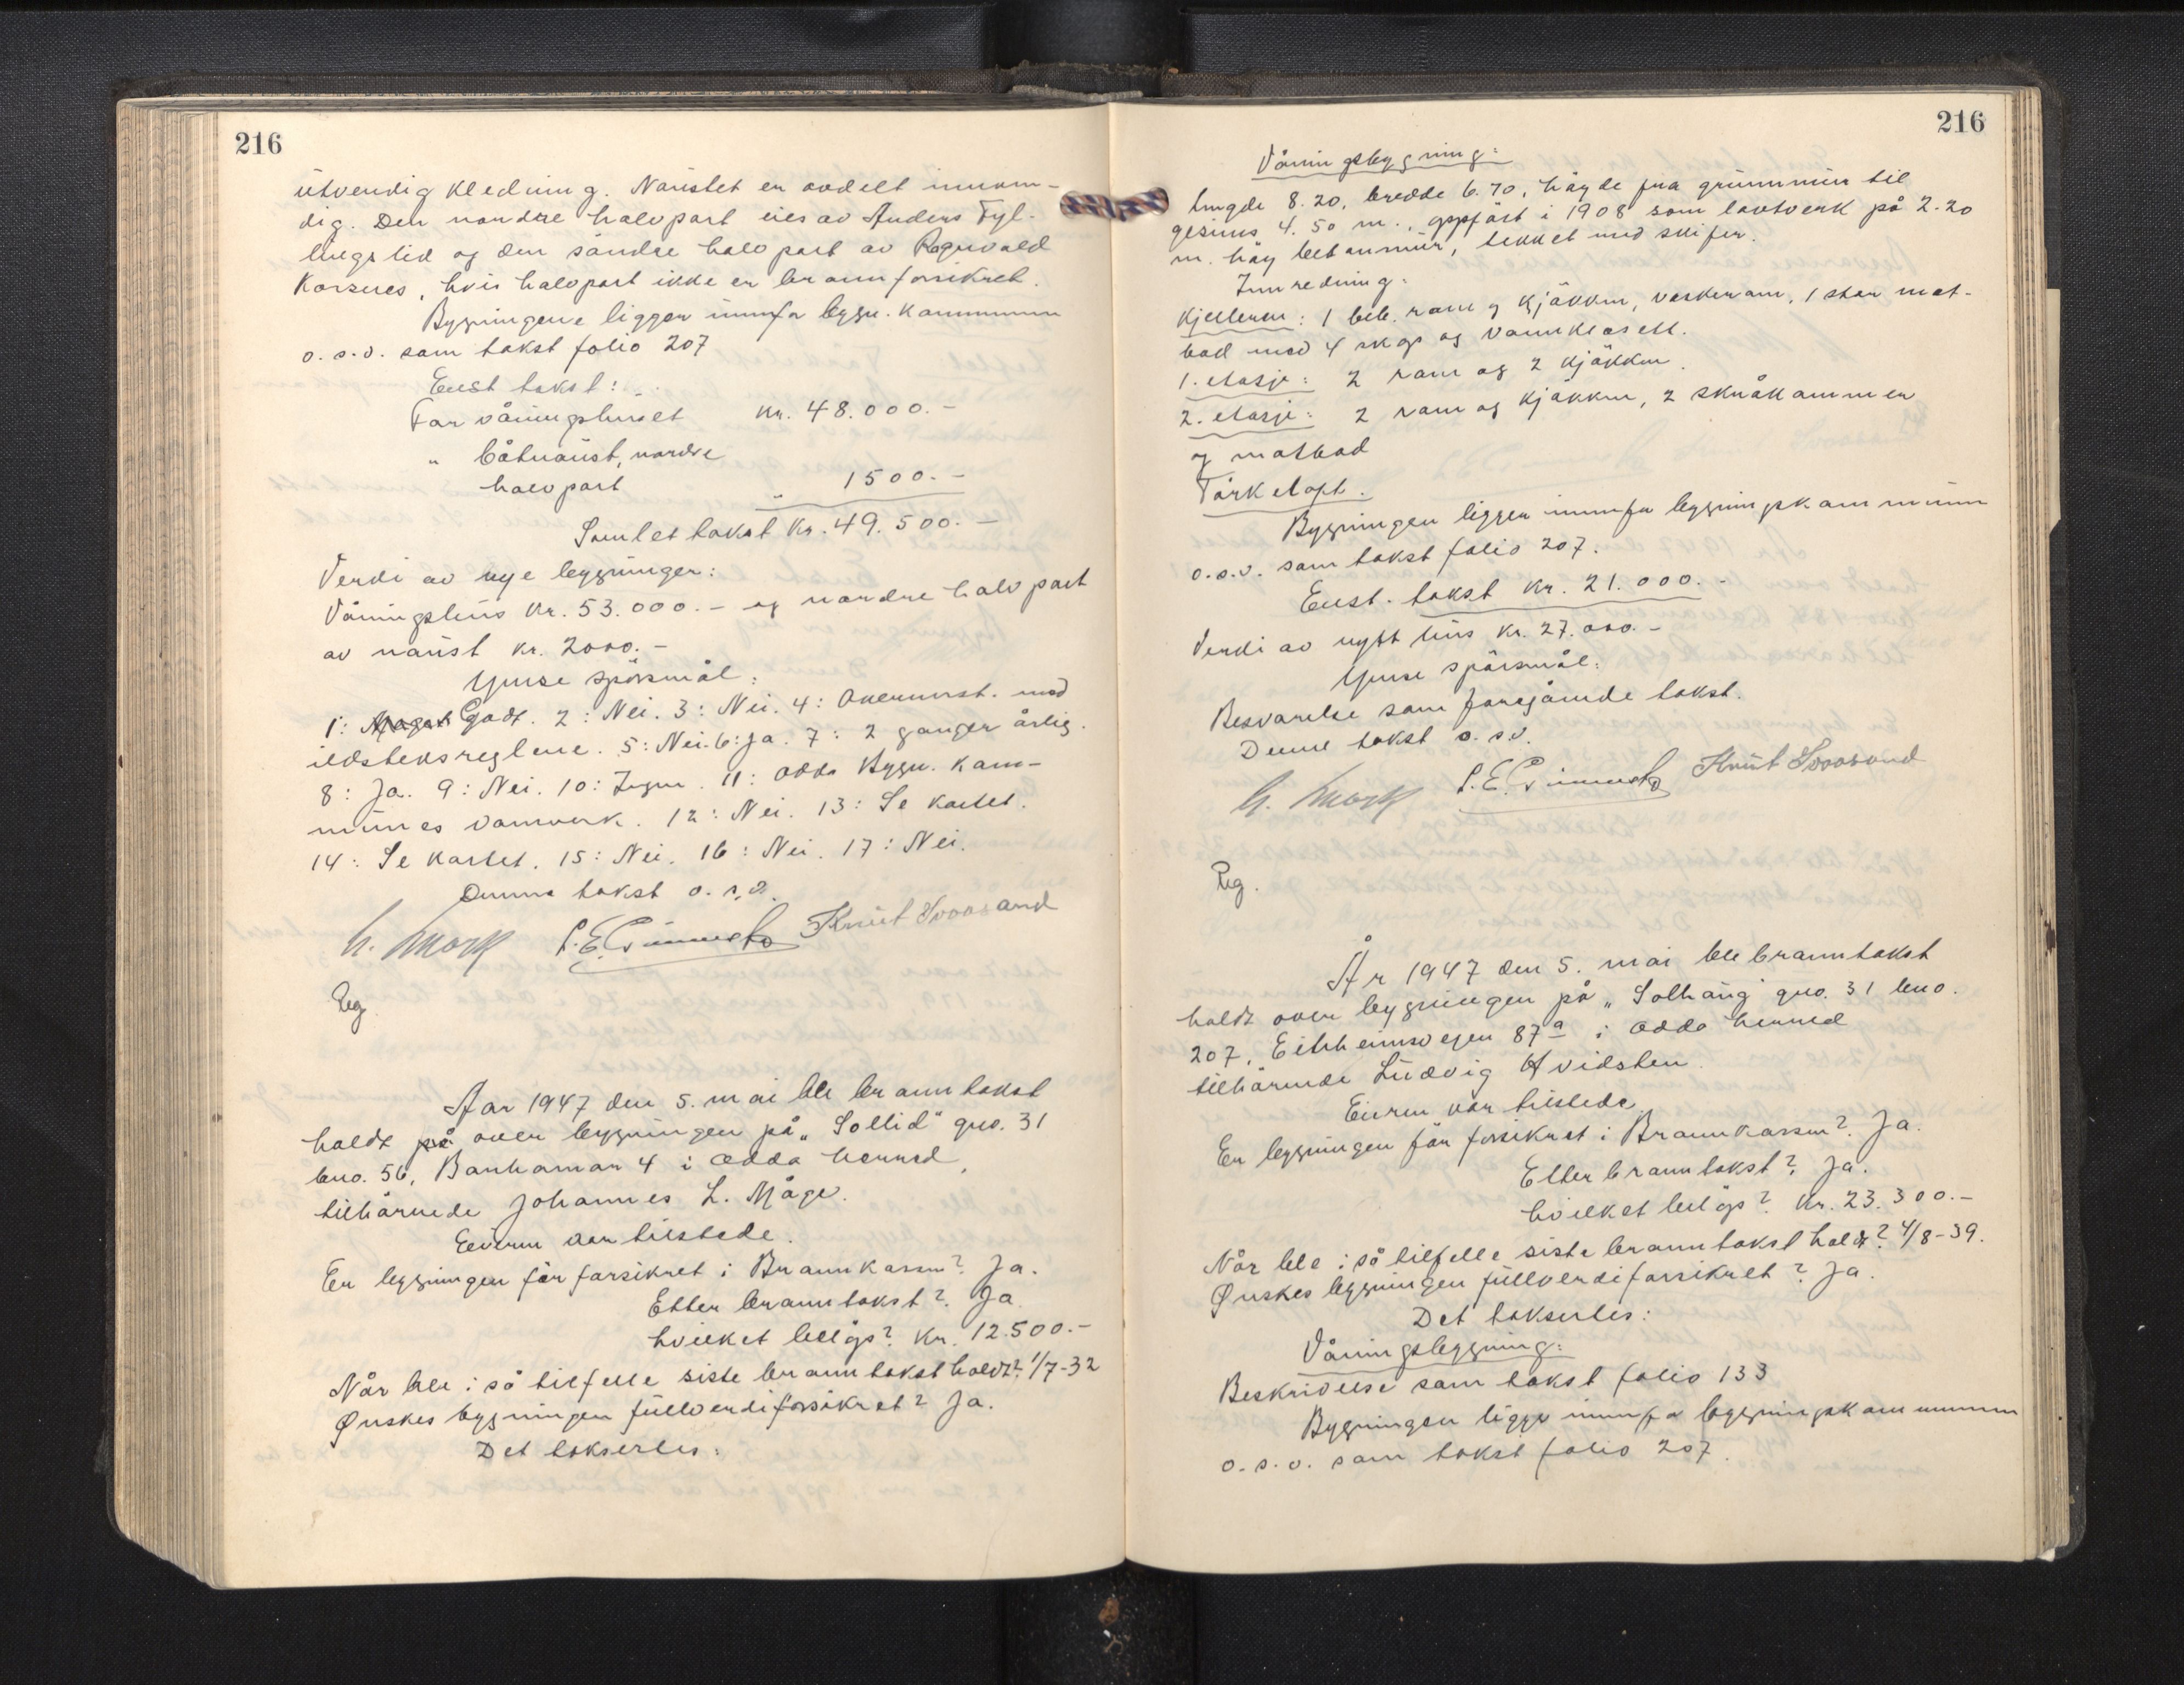 216
utvendig kledning. Naustet er avdelt innven-
dig. Den nordre halvpart eies av Anders Tyl-
lingslid og den søndre halvpart av Ragnvald
Korsnes, hvis halvpart ikke er brannforsikret.
Bygningene ligger innafor bygn. kommunen
o.s.v. som takst folio 207
Enst. takst:
For våningshuset kr. 48.000.-
" båtnaust, nordre
halvpart " 1500.-
Samlet takst kr. 49.500.-
Verdi av nye bygninger:
Våningshus kr. 53.000.- og nordre halvpart
av naust kr. 2000.-
Ymse spörsmål:
1: Godt. 2: Nei. 3: Nei. 4: Overensst. med
ildstedsreglene. 5: Nei. 6: Ja. 7: 2 ganger årlig.
8: Ja. 9: Nei. 10: Ingen. 11: Odda Bygn. kom-
munes vannverk. 12: Nei. 13: Se kartet.
14: Se kartet. 15: Nei. 16: Nei. 17: Nei.
Denne takst o.s.v.
H. Mork Knut Svoosand
Reg.
Aar 1947 den 5. mai ble branntakst
holdt på over bygningen på „Sollid" gno. 31
bno. 56, Banhamar 4 i Odda herred,
tilhørende Johannes L. Måge.
Eieren var tilstede.
Er bygningen før forsikret i Brannkassen? Ja.
Etter branntakst? Ja
hvilket beløp? Kr. 12.500.-
Når ble i så tilfelle siste branntakst holdt? 1/7-32
Ønskes bygningen fullverdiforsikret? Ja.
Det takserles:
216
Våningsbygning:
Lengde 8.20, bredde 6.70, høyde fra grunnmur til
gesims 4.50 m., oppført i 1908 som laftverk på 2.20
m. høy betonmur, tekket med skifer.
Innredning.
Kjelleren: 1 beb. rom og kjøkken, vaskerom, 1 stor mat-
bod med 4 skap og vannklosett.
1. etasje: 2 rom og 2 kjøkken.
2. etasje: 2 rom og kjøkken, 2 skråkammer
og matbod
Tørkeloft.
Bygningen ligger innafor bygningskommunen
o.s.v. som takst folio 207.
Enst. takst kr. 21.000.-
Verdi av nytt hus kr. 27.000.-
Ymse spørsmål:
Besvarelse som foregående takst.
Denne takst o.s.v.
H. Mork Knut Svoosand
Reg.
År 1947 den 5. mai ble branntakst
holdt over bygningen på „Solhaug" gno. 31 bno.
207, Eitrheimsvegen 87a i Odda herred
tilhørende Ludvig Hvidsten.
Eieren var tilstede.
Er bygningen før forsikret i Brannkassen? Ja.
Etter branntakst? Ja.
hvilket beløp? Kr. 23.300.-
Når ble i så tilfelle siste branntakst holdt? 4/8-39.
Ønskes bygningen fullverdiforsikret? Ja.
Det takserles:
Våningsbygning:
Beskrivelse som takst folio 133
Bygningen ligger innafor bygningskommunen
o.s.v. som takst folio 207.